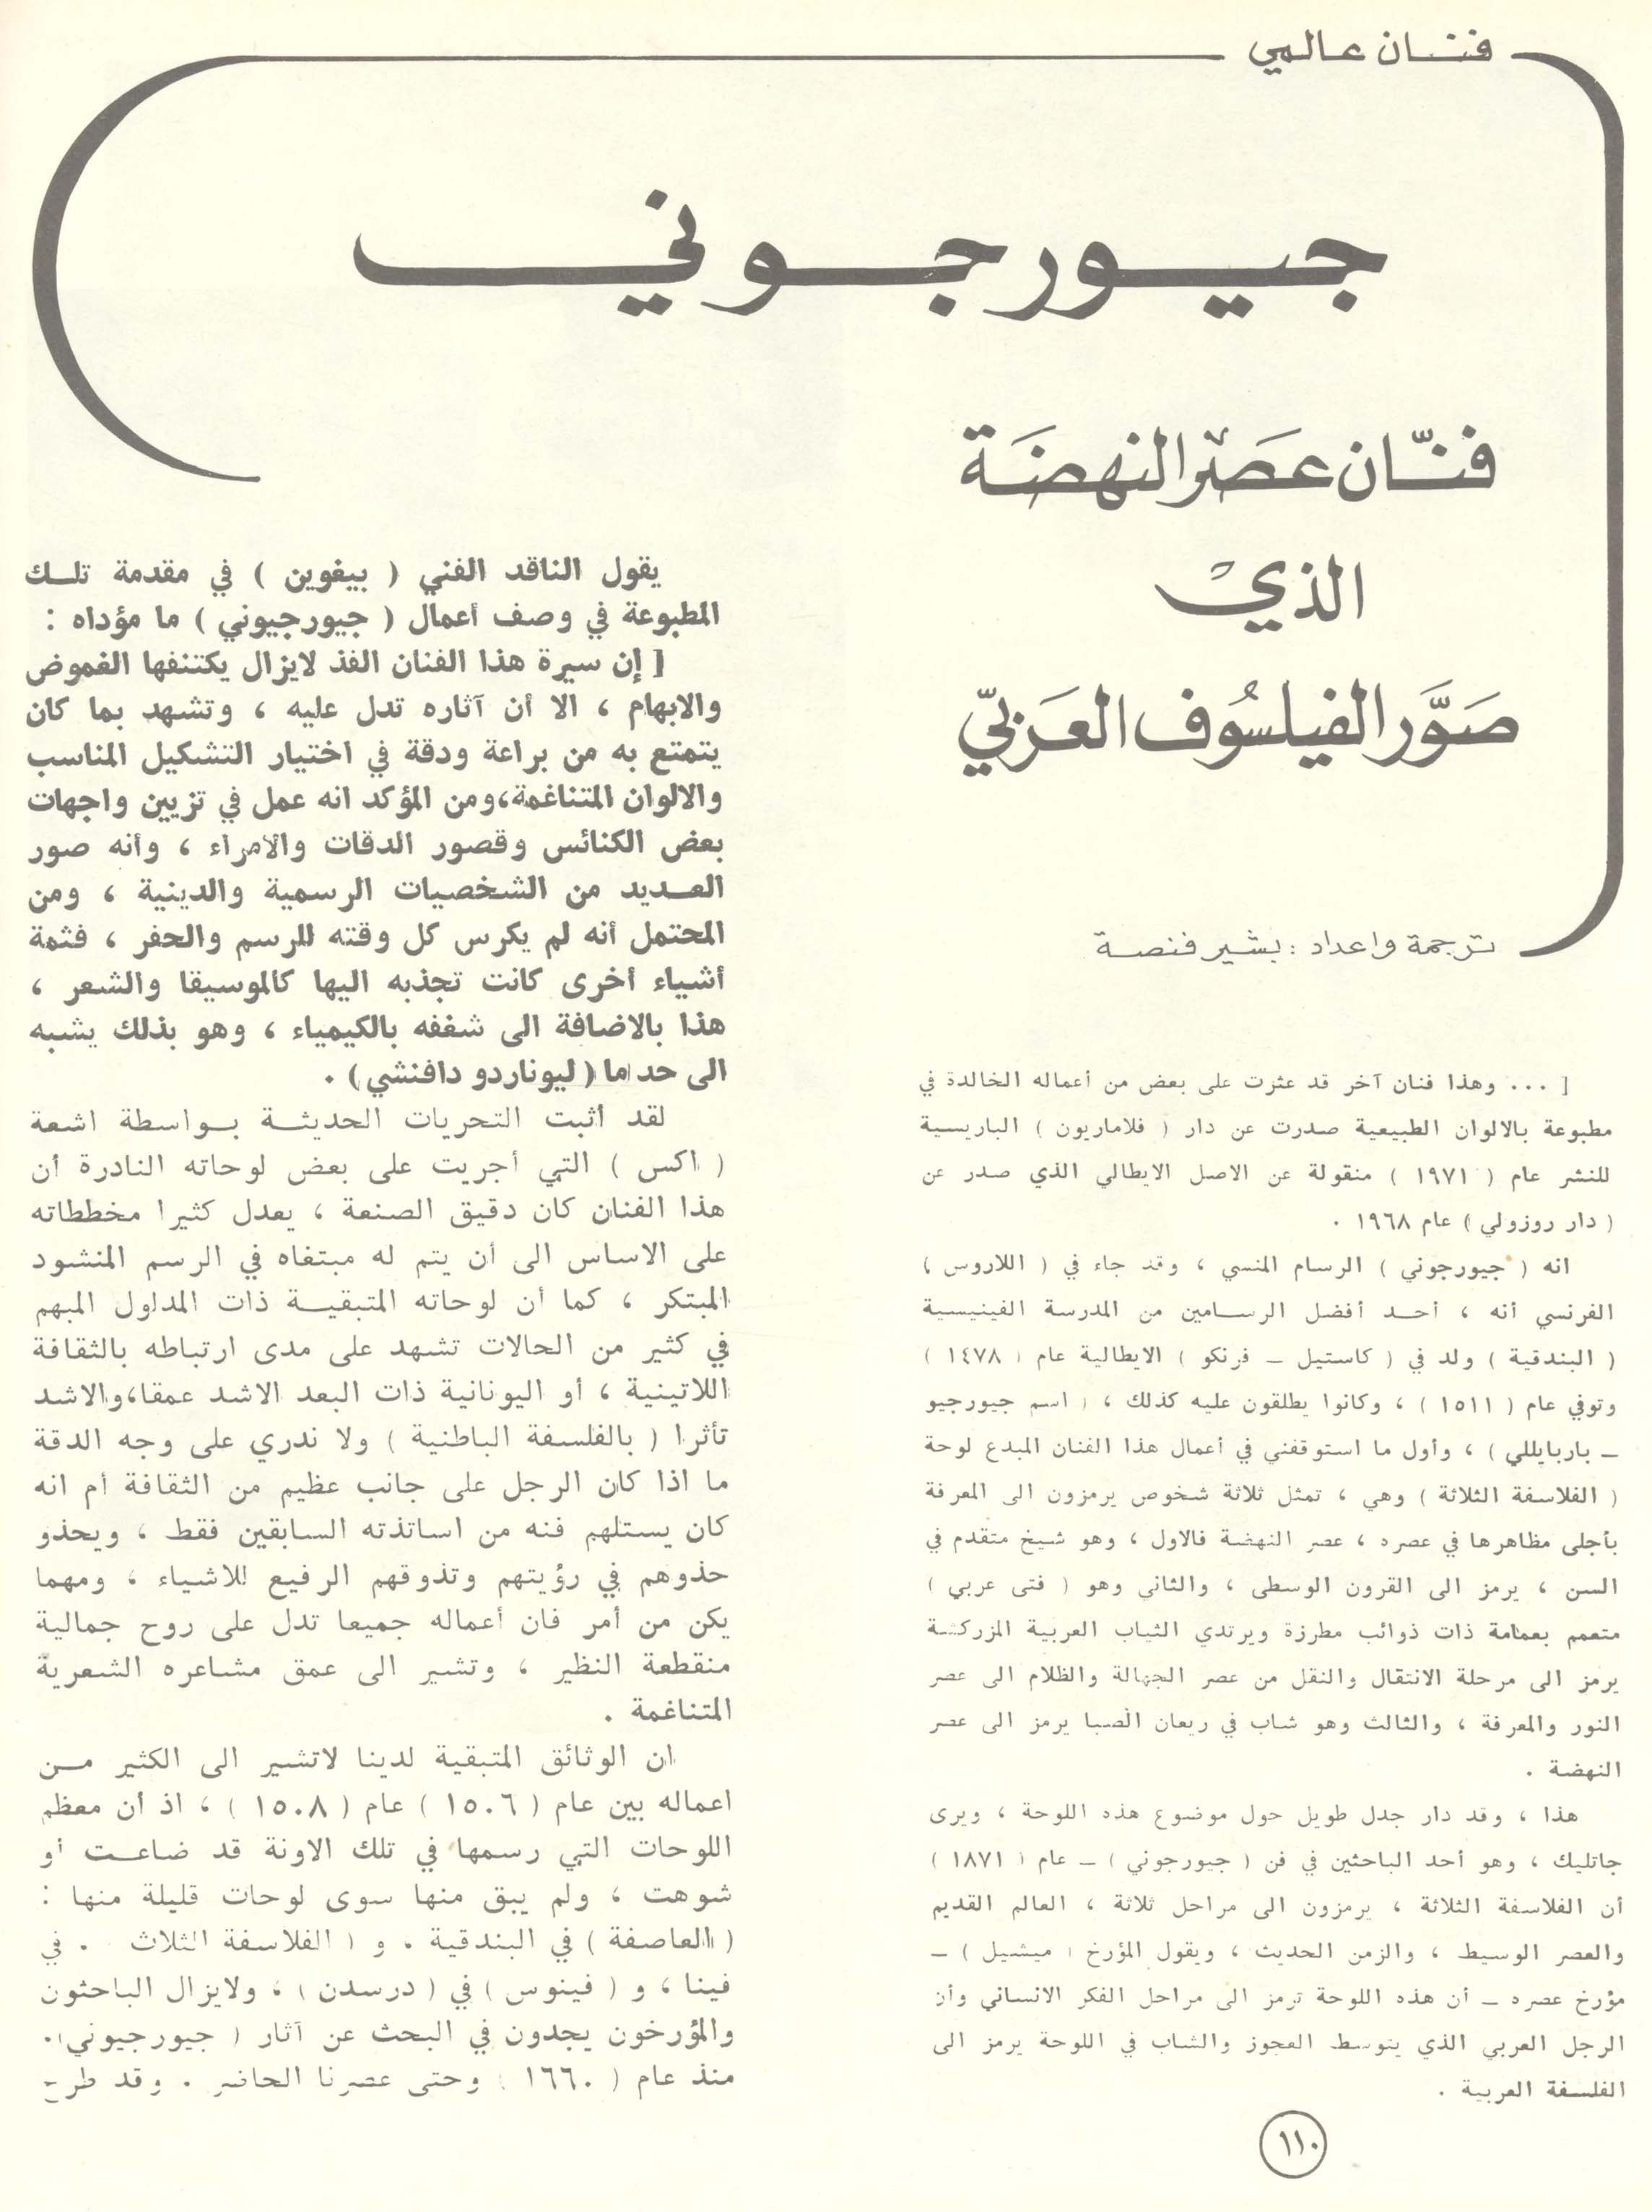 فنان عالمي
جيورجوني
فنّان عصر النهضة
الذي
صَوَّر الفيلسُوف العَربيّ
ترجمة واعداد : بشير فنصة
[ ... وهذا فنان آخر قد عثرت على بعض من أعماله الخالدة في
مطبوعة بالالوان الطبيعية صدرت عن دار ( فلاماريون ) الباريسية
للنشر عام ( ١٩٧١ ) منقولة عن الاصل الايطالي الذي صدر عن
( دار روزولي ) عام ١٩٦٨ .
انه ( جيورجوني ) الرسام المنسي ، وقد جاء في ( اللاروس )
الفرنسي أنه ، أحد أفضل الرسامين من المدرسة الفينيسية
( البندقية ) ولد في ( كاستيل - فرنكو ) الايطالية عام ( ١٤٧٨ )
وتوفي عام ( ١٥١١ ) ، وكانوا يطلقون عليه كذلك ، ( اسم جيورجيو
- باربايللي ) ، وأول ما استوقفني في أعمال هذا الفنان المبدع لوحة
( الفلاسفة الثلاثة ) وهي ، تمثل ثلاثة شخوص يرمزون الى المعرفة
بأجلى مظاهرها في عصره ، عصر النهضة فالاول ، وهو شيخ متقدم في
السن ، يرمز الى القرون الوسطى ، والثاني وهو ( فتى عربي )
متعمم بعمامة ذات ذوائب مطرزة ويرتدي الثياب العربية المزركشة
يرمز الى مرحلة الانتقال والنقل من عصر الجهالة والظلام الى عصر
النور والمعرفة ، والثالث وهو شاب في ريعان الصبا يرمز الى عصر
النهضة .
هذا ، وقد دار جدل طويل حول موضوع هذه اللوحة ، ويرى
جاتليك ، وهو أحد الباحثين في فن ( جيورجوني ) - عام ( ١٨٧١ )
أن الفلاسفة الثلاثة ، يرمزون الى مراحل ثلاثة ، العالم القديم
والعصر الوسيط ، والزمن الحديث ، ويقول المؤرخ ( ميشيل ) -
مؤرخ عصره - أن هذه اللوحة ترمز الى مراحل الفكر الانساني وأن
الرجل العربي الذي يتوسط العجوز والشاب في اللوحة يرمز الى
الفلسفة العربية .
يقول الناقد الفني ( بيغوين ) في مقدمة تلك
المطبوعة في وصف أعمال ( جيورجيوني ) ما مؤداه :
[ إن سيرة هذا الفنان الفذ لايزال يكتنفها الغموض
والابهام ، الا أن آثاره تدل عليه ، وتشهد بما كان
يتمتع به من براعة ودقة في اختيار التشكيل المناسب
والالوان المتناغمة،ومن المؤكد انه عمل في تزيين واجهات
بعض الكنائس وقصور الدقات والامراء ، وأنه صور
العديد من الشخصيات الرسمية والدينية ، ومن
المحتمل أنه لم يكرس كل وقته للرسم والحفر ، فثمة
أشياء أخرى كانت تجذبه اليها كالموسيقا والشعر ،
هذا بالاضافة الى شغفه بالكيمياء ، وهو بذلك يشبه
الى حد ما ( ليوناردو دافنشي) .
لقد أثبت التحريات الحديثة بواسطة اشعة
( اكس ) التي أجريت على بعض لوحاته النادرة أن
هذا الفنان كان دقيق الصنعة ، يعدل كثيرا مخططاته
على الاساس الى أن يتم له مبتغاه في الرسم المنشود
المبتكر ، كما أن لوحاته المتبقية ذات المدلول المبهم
في كثير من الحالات تشهد على مدى ارتباطه بالثقافة
اللاتينية ، أو اليونانية ذات البعد الاشد عمقا،والاشد
تأثرا ( بالفلسفة الباطنية ) ولا ندري على وجه الدقة
ما اذا كان الرجل على جانب عظيم من الثقافة أم انه
كان يستلهم فنه من اساتذته السابقين فقط ، ويحذو
حذوهم في رؤيتهم وتذوقهم الرفيع للاشياء ، ومهما
يكن من أمر فان أعماله جميعا تدل على روح جمالية
منقطعة النظير ، وتشير الى عمق مشاعره الشعرية
المتناغمة .
ان الوثائق المتبقية لدينا لاتشير الى الكثير من
اعماله بين عام ( ١٥٠٦ ) عام ( ١٥٠٨ ) ، اذ أن معظم
اللوحات التي رسمها في تلك الاونة قد ضاعت أو
شوهت ، ولم يبق منها سوى لوحات قليلة منها :
( العاصفة ) في البندقية . و ( الفلاسفة الثلاث . في
فينا ، و ( فينوس ) في ( درسدن ) ، ولايزال الباحثون
والمؤرخون يجدون في البحث عن آثار ( جيورجيوني) .
منذ عام ( ١٦٦٠ ) وحتى عصرنا الحاضر . وقد طرح
١١٠